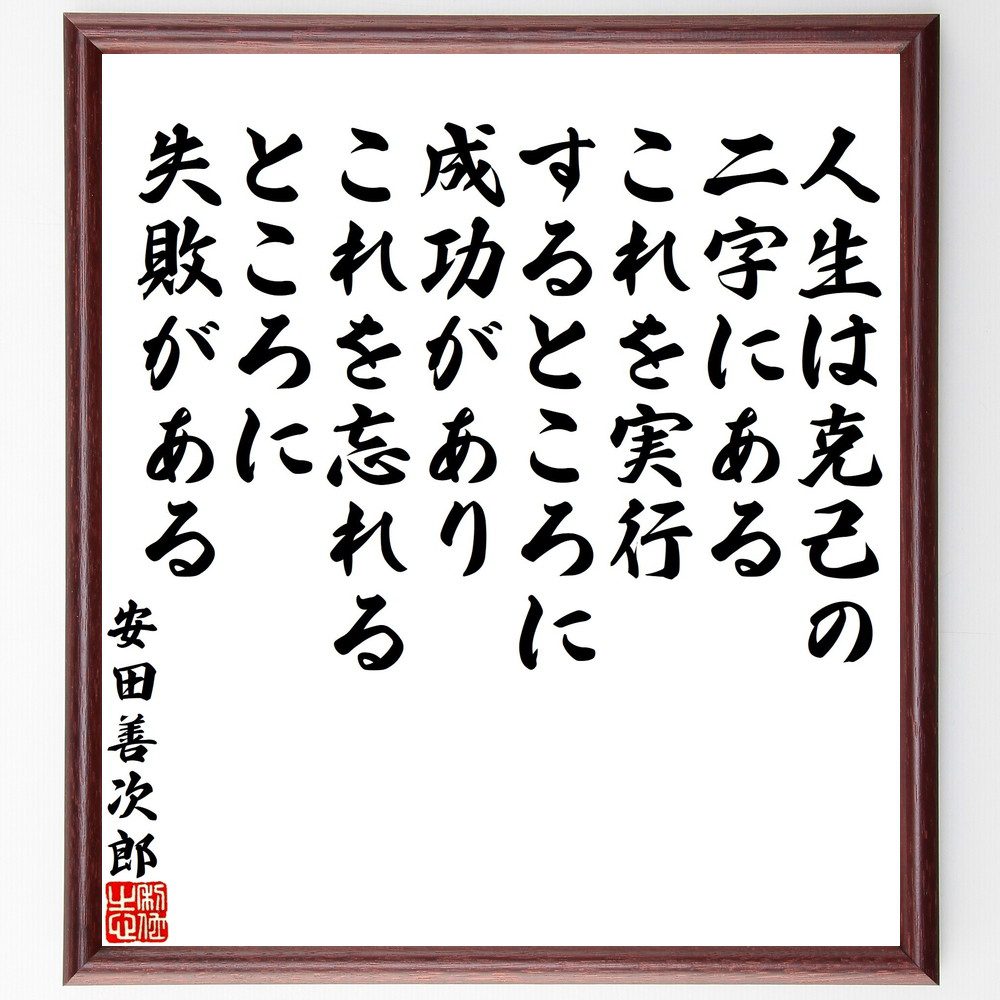 人生は克己の
二字にある
これを実行
するところに
成功があり
これを忘れる
ところに
失敗がある
安田善次郎